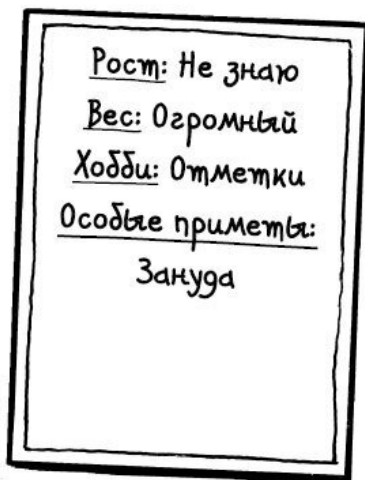 Рост: Не знаю
Вес: Огромный
Хобби: Отметки
Особые приметы:
Зануда